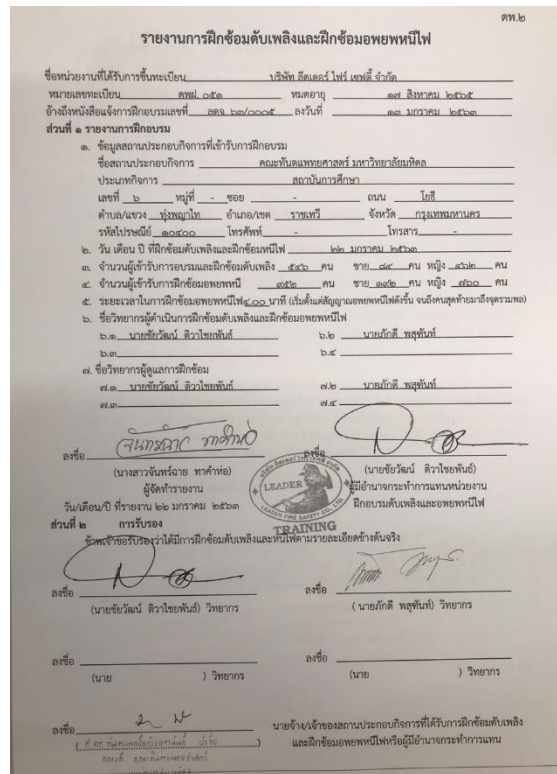 ดพ.๒
รายงานการฝึกซ้อมดับเพลิงและฝึกซ้อมอพยพหนีไฟ
ชื่อหน่วยงานที่ได้รับการขึ้นทะเบียน บริษัท ลีดเดอร์ ไฟร์ เซฟตี้ จำกัด
หมายเลขทะเบียน ดพฝ. ๐๕๑ หมดอายุ ๑๗ สิงหาคม ๒๕๖๕
อ้างถึงหนังสือแจ้งการฝึกอบรมเลขที่ ลดจ. ๖๓/๐๐๐๕ ลงวันที่ ๑๓ มกราคม ๒๕๖๓
ส่วนที่ ๑ รายงานการฝึกอบรม
๑. ข้อมูลสถานประกอบกิจการที่เข้ารับการฝึกอบรม
ชื่อสถานประกอบกิจการ คณะทันตแพทยศาสตร์ มหาวิทยาลัยมหิดล
ประเภทกิจการ สถาบันการศึกษา
เลขที่ ๖ หมู่ที่ - ซอย - ถนน โยธี
ตำบล/แขวง ทุ่งพญาไท อำเภอ/เขต ราชเทวี จังหวัด กรุงเทพมหานคร
รหัสไปรษณีย์ ๑๐๔๐๐ โทรศัพท์ - โทรสาร -
๒. วัน เดือน ปี ที่ฝึกซ้อมดับเพลิงและฝึกซ้อมหนีไฟ ๒๒ มกราคม ๒๕๖๓
๓. จำนวนผู้เข้ารับการอบรมและฝึกซ้อมดับเพลิง ๕๔๖ คน ชาย ๘๔ คน หญิง ๔๖๒ คน
๔. จำนวนผู้เข้ารับการฝึกซ้อมอพยพหนี ๙๕๒ คน ชาย ๑๙๒ คน หญิง ๗๖๐ คน
๕. ระยะเวลาในการฝึกซ้อมอพยพหนีไฟ ๔.๐๐ นาที (เริ่มตั้งแต่สัญญาณอพยพหนีไฟดังขึ้น จนถึงคนสุดท้ายมาถึงจุดรวมพล)
๖. ชื่อวิทยากรผู้ดำเนินการฝึกซ้อมดับเพลิงและฝึกซ้อมอพยพหนีไฟ
๖.๑ นายชัยวัฒน์ ติวาไชยพันธ์ ๖.๒ นายภักดี พสุพันท์
๖.๓ ๖.๔
๗. ชื่อวิทยากรผู้ดูแลการฝึกซ้อม
๗.๑ นายชัยวัฒน์ ติวาไชยพันธ์ ๗.๒ นายภักดี พสุพันท์
๗.๓ ๗.๔
ลงชื่อ ลงชื่อ
(นางสาวจันทร์ฉาย ทาคำห่อ) (นายชัยวัฒน์ ติวาไชยพันธ์)
ผู้จัดทำรายงาน ผู้มีอำนาจกระทำการแทนหน่วยงาน
วัน/เดือน/ปี ที่รายงาน ๒๒ มกราคม ๒๕๖๓ ฝึกอบรมดับเพลิงและอพยพหนีไฟ
LEADER
LEADER FIRE SAFETY CO., LTD.
TRAINING
ส่วนที่ ๒ การรับรอง
ข้าพเจ้าขอรับรองว่าได้มีการฝึกซ้อมดับเพลิงและหนีไฟตามรายละเอียดข้างต้นจริง
ลงชื่อ ลงชื่อ
(นายชัยวัฒน์ ติวาไชยพันธ์) วิทยากร (นายภักดี พสุพันท์) วิทยากร
ลงชื่อ ลงชื่อ
(นาย ) วิทยากร (นาย ) วิทยากร
ลงชื่อ นายจ้าง/เจ้าของสถานประกอบกิจการที่ได้รับการฝึกซ้อมดับเพลิง
และฝึกซ้อมอพยพหนีไฟหรือผู้มีอำนาจกระทำการแทน